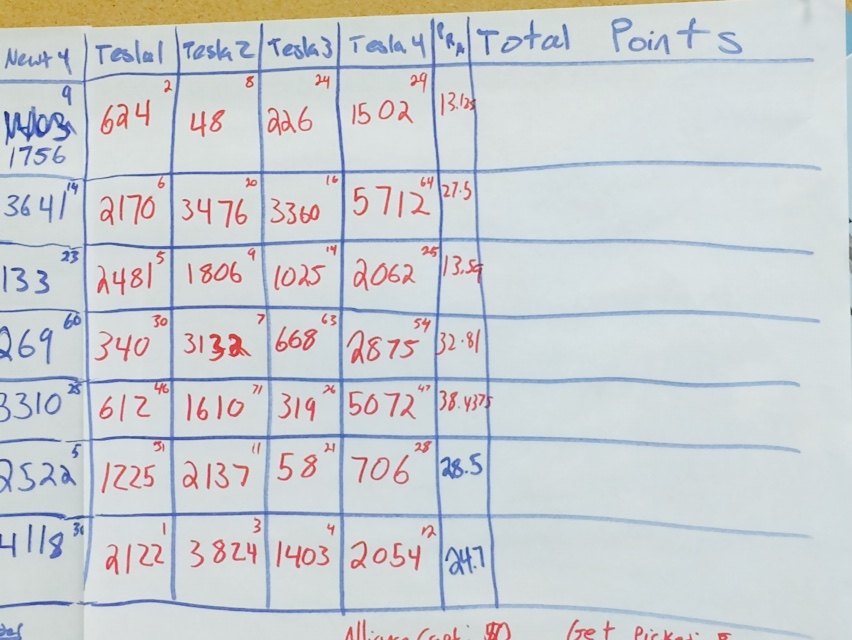 Newt 4 Tesla1 Tesla 2 Tesla3 Tesla 4 PRA Total Points
9 2 8 24 29
624 48 226 1502 13.125
1756
14 6 20 16 64
3641 2170 3476 3360 5712 27.5
23 5 9 14 25
133 2481 1806 1025 2062 13.59
60 30 7 63 54
269 340 3132 668 2875 32.81
25 46 71 26 47
3310 612 1610 319 5072 38.4375
5 31 11 21 28
2522 1225 2137 58 706 28.5
1 3 4 12
4118 2122 3824 1403 2054 24.7
Get